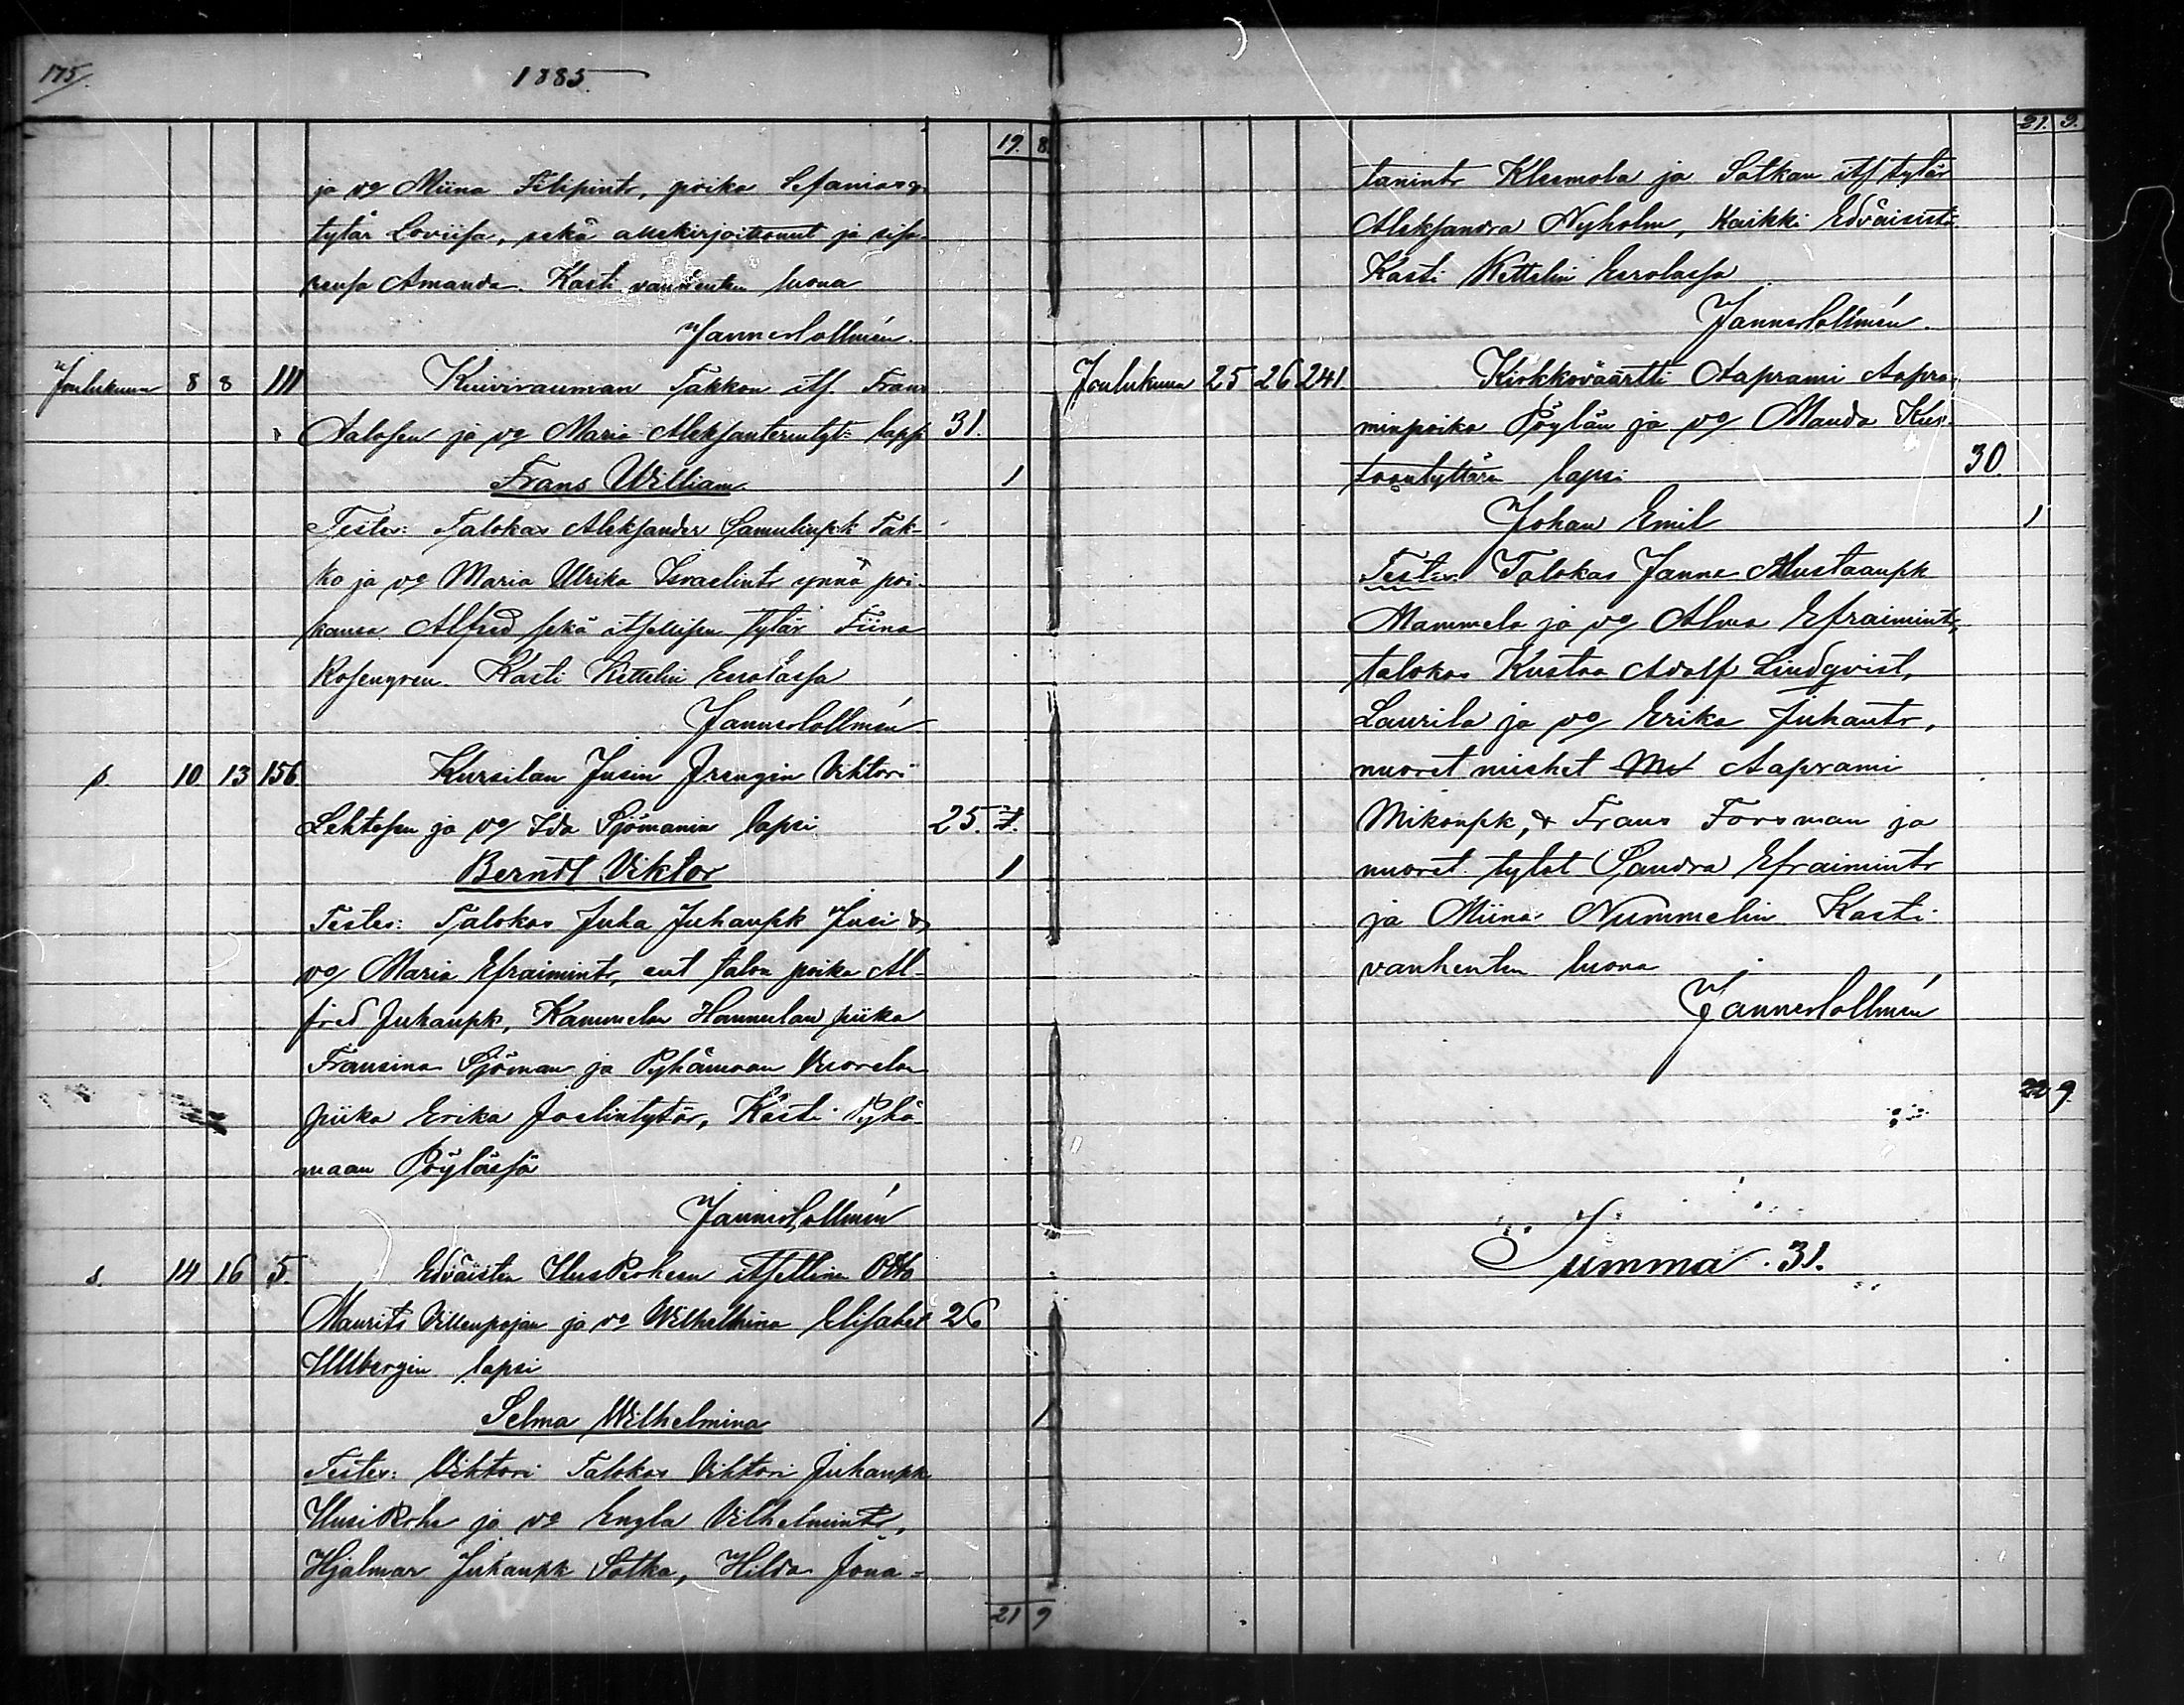 175.
1885.
19. 8.
ja vo Miina Filipintr, poika Sefanias &
tytär Loviisa, sekä allekirjoittanut ja sisa-
rensa Amanda. Kasti vanhenten luona
Janne Collmén.
Joulukuun 8 8 111 Kuivirauman Takkon its. Frans
Aalosen ja vo Maria Aleksanterintyt: lapsi 31.
Frans William. 1
Testes: Talokas Aleksander Samulinpk Tak-
ko ja vo Maria Ulrika Israelintr ynnä poi-
kansa Alfred sekä itsellisen tytär Fiina
Rosengren. Kasti Kettelin Eerolassa
Janne Collmén
s. 10. 13 156. Kursilan Jusin Irengin Viktori
Lehtosen ja vo Ida Sjömanin lapsi 25. t.
Berndt Viktor 1
Testes: Talokas Juha Juhanpk Jusi &
vo Maria Efraimintr, ent talon poika Al-
fred Juhanpk, Kammelan Hannulan piika
Fransina Sjöman ja Pyhämaan Vuorelan
piika Erika Joelintytär, Kasti Pyhä-
maan Pöylässä
Janne Collmén
s. 14 16 5. Edväisten UusRohen itsellinen Otto
Maurits Villenpojan ja vo Wilhelmina Elisabet 26
Ullbergin lapsi
Selma Wilhelmina 1
Testes: Viktori Talokas Viktori Juhanpk
UusiRohe ja vo Engla Vilhelmintr,
Hjalmar Juhanpk Sotka, Hilda Jona-
21 9
21. 9.
tanintr Kleemola ja Sotkan its tytär
Aleksandra Nyholm, Kaikki Edväisistä
Kasti Kettelin Eerolassa
Janne Collmén.
Joulukuun 25 26 241. Kirkkoväärtti Aaprami Aapra-
minpoika Pöylän ja vo Manda Kus-
taantyttären lapsi 30.
Johan Emil 1
Testes: Talokas Janne Kustaanpk
Mammela ja vo Alma Efraimintr,
talokas Kustaa Adolf Lindqvist,
Laurila ja vo Erika Juhantr,
nuoret miehet Mi Aaprami
Mikonpk, & Frans Forsman ja
nuoret tytöt Sandra Efraimintr
ja Miina Nummelin Kasti
vanhenten luona
Janne Collmén
22 9.
Summa 31.